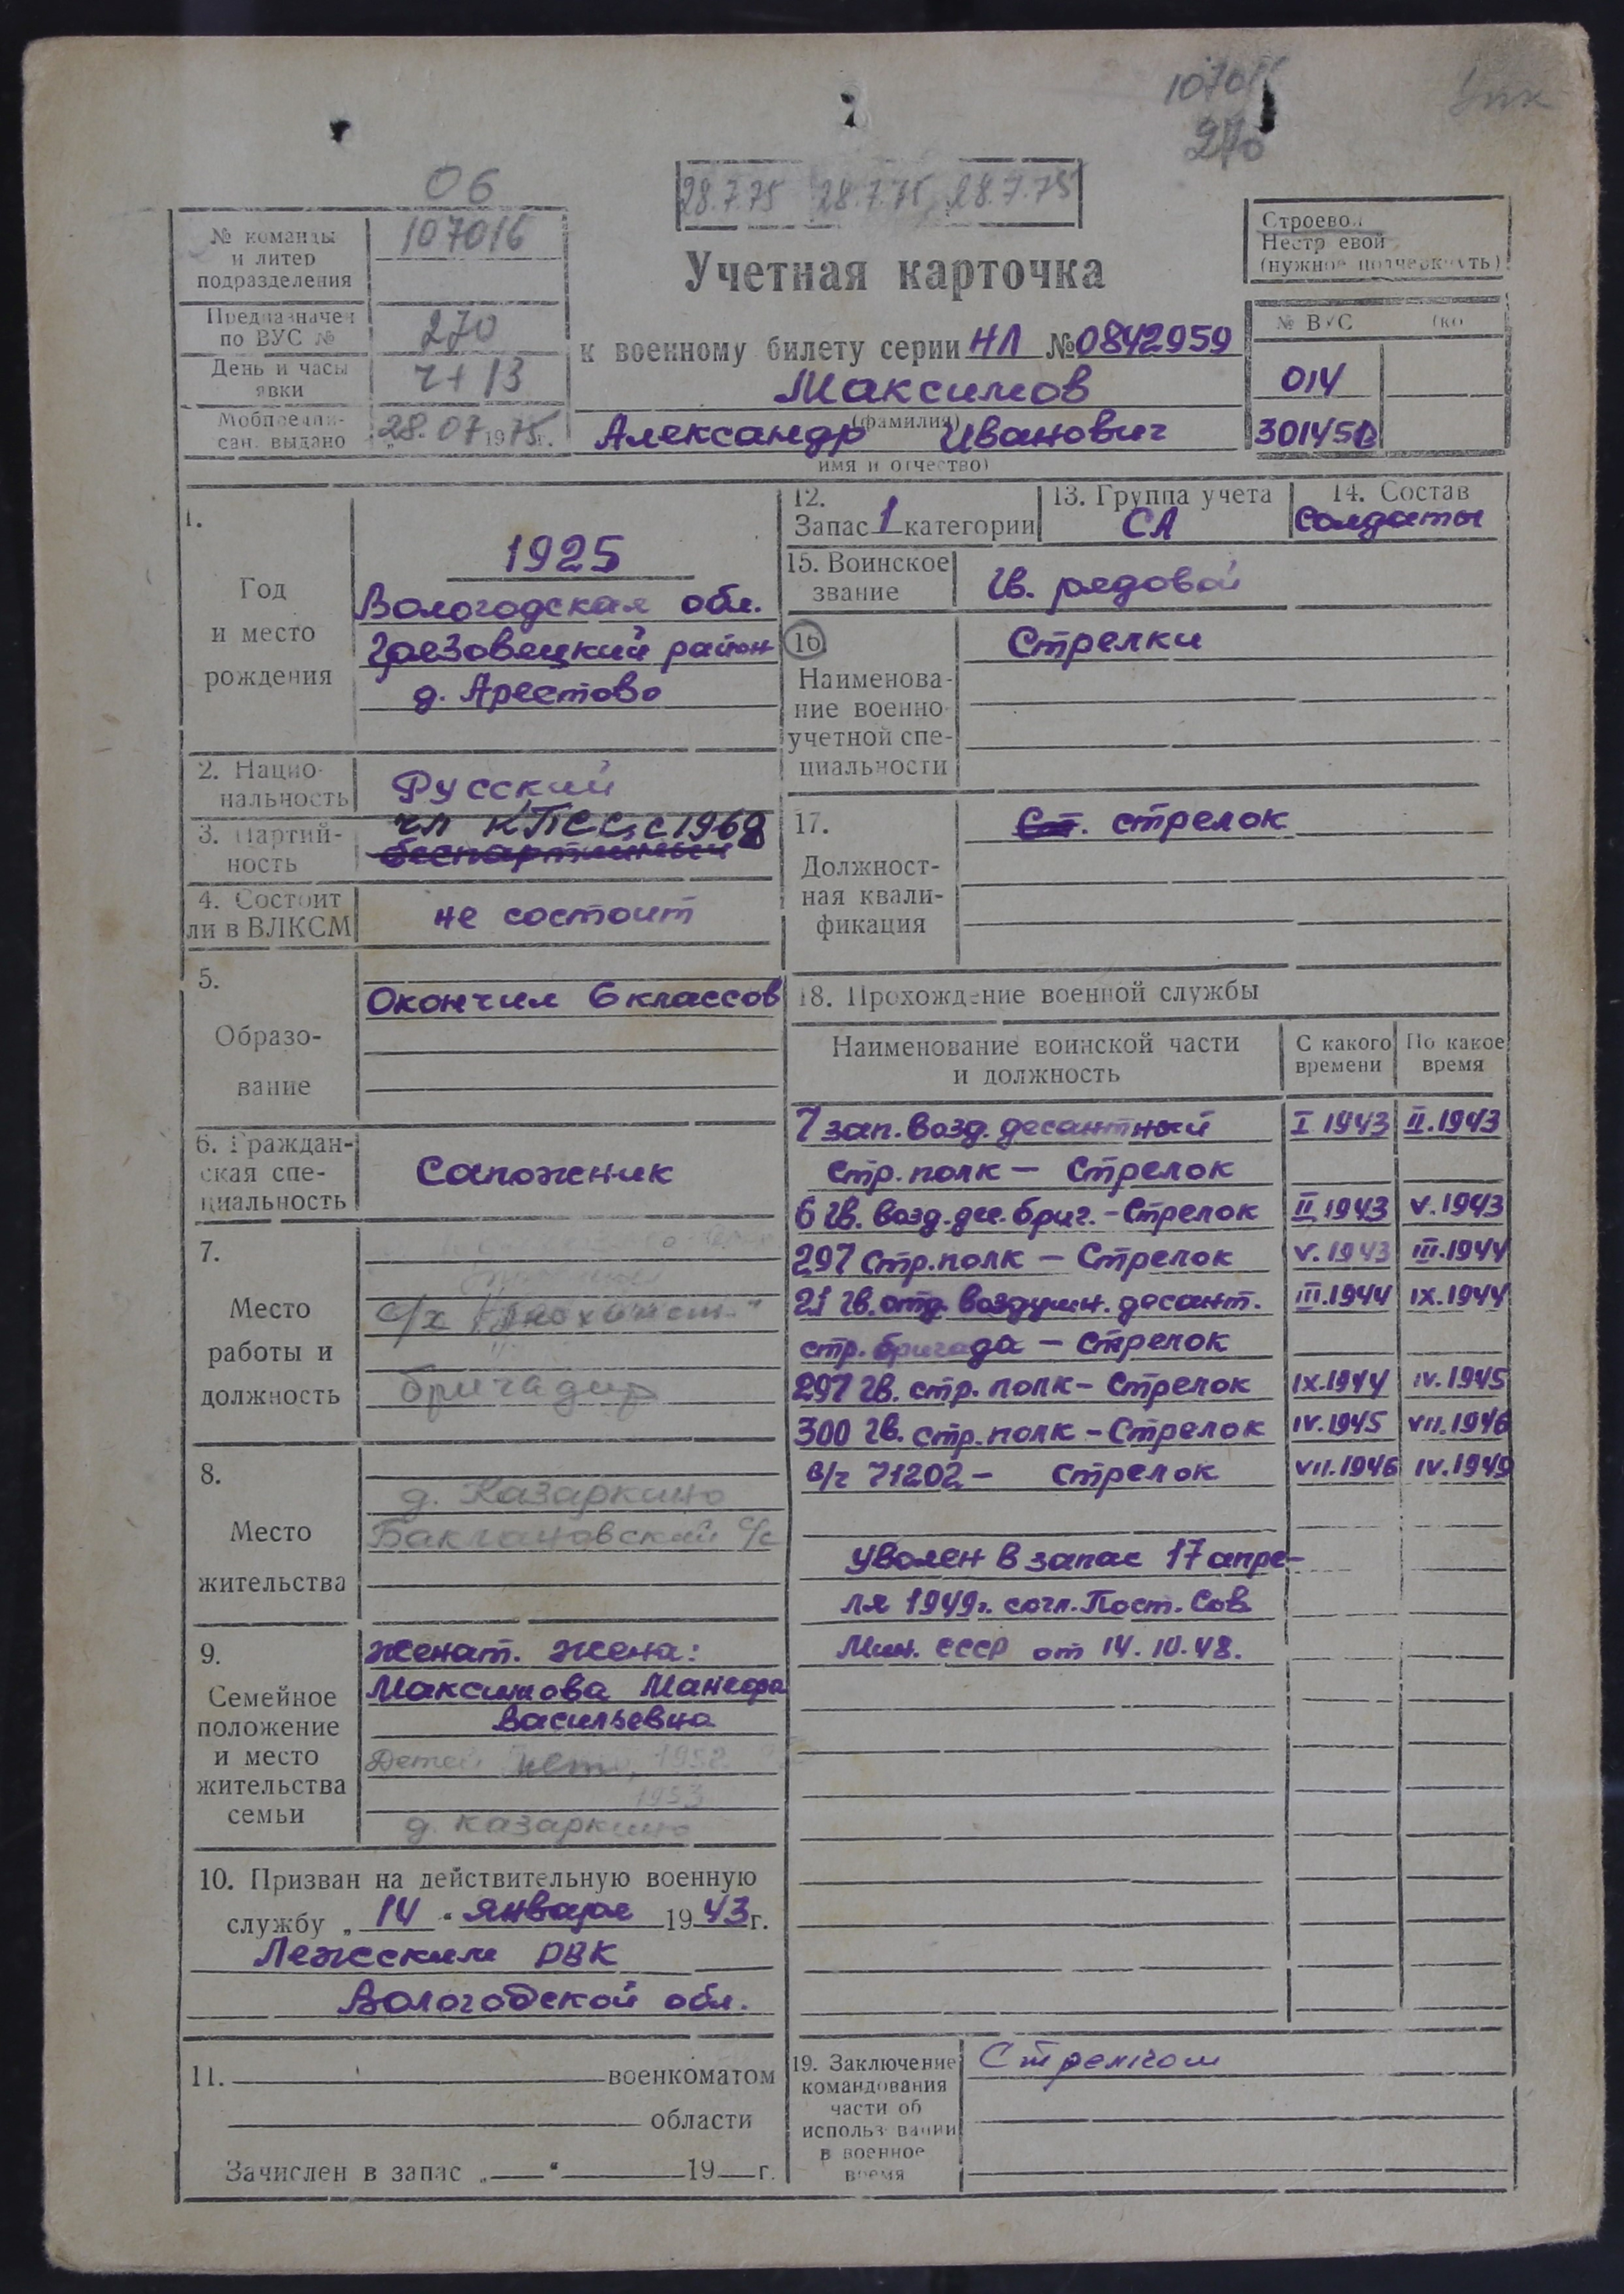 107016
270
06
28.7.75 28.7.75 28.7.75
№ команды и литер подразделения
107016
Предназначен по ВУС №
270
День и часы явки
Ч+13
Мобпредписан. выдано
28.07 1975г.
Учетная карточка
к военному билету серии НЛ № 0842959
Максимов
(фамилия)
Александр Иванович
имя и отчество)
Строевой
Нестроевой
(нужное подчеркнуть)
№ ВУС
014
301451В
1.
Год
и место
рождения
1925
Вологодская обл.
Грязовецкий район
д. Арестово
2. Нацио-
нальность
Русский
3. Партий-
ность
чл КПСС с 1968
беспартийный
4. Состоит
ли в ВЛКСМ
не состоит
5.
Образо-
вание
Окончил 6 классов
6. Граждан-
ская спе-
циальность
Сапожник
7.
Место
работы и
должность
с/х
бригадир
8.
Место
жительства
д. Казаркино
Баклановский с/с
9.
Семейное
положение
и место
жительства
семьи
женат. жена:
Максимова
Васильевна
Детей нет, 1952
1953
д. Казаркино
10. Призван на действительную военную
службу „ 14 “ января 19 43 г.
Лежским РВК
Вологодской обл.
11. военкоматом
области
Зачислен в запас „ “ 19 г.
12.
Запас 1 категории
13. Группа учета
СА
14. Состав
Солдаты
15. Воинское
звание
Гв. рядовой
16
Наименова-
ние военно
учетной спе-
циальности
Стрелки
17.
Должност-
ная квали-
фикация
Ст. стрелок
18. Прохождение военной службы
Наименование воинской части
и должность
С какого
времени
По какое
время
7 зап. возд. десантный I 1943 II.1943
стр. полк — Стрелок
6 Гв. возд. дес. бриг. - Стрелок II 1943 V.1943
297 Стр. полк — Стрелок V.1943 III.1944
21 Гв. отд. воздушн. десант. III.1944 IX.1944
стр. бригада — Стрелок
297 Гв. стр. полк - Стрелок IX.1944 IV.1945
300 Гв. стр. полк - Стрелок IV.1945 VII.1946
в/ч 71202 - Стрелок VII.1946 IV.1949
Уволен в запас 17 апре-
ля 1949г. согл. Пост. Сов.
Мин. СССР от 14.10.48.
19. Заключение
командования
части об
использовании
в военное
время
Стрелком